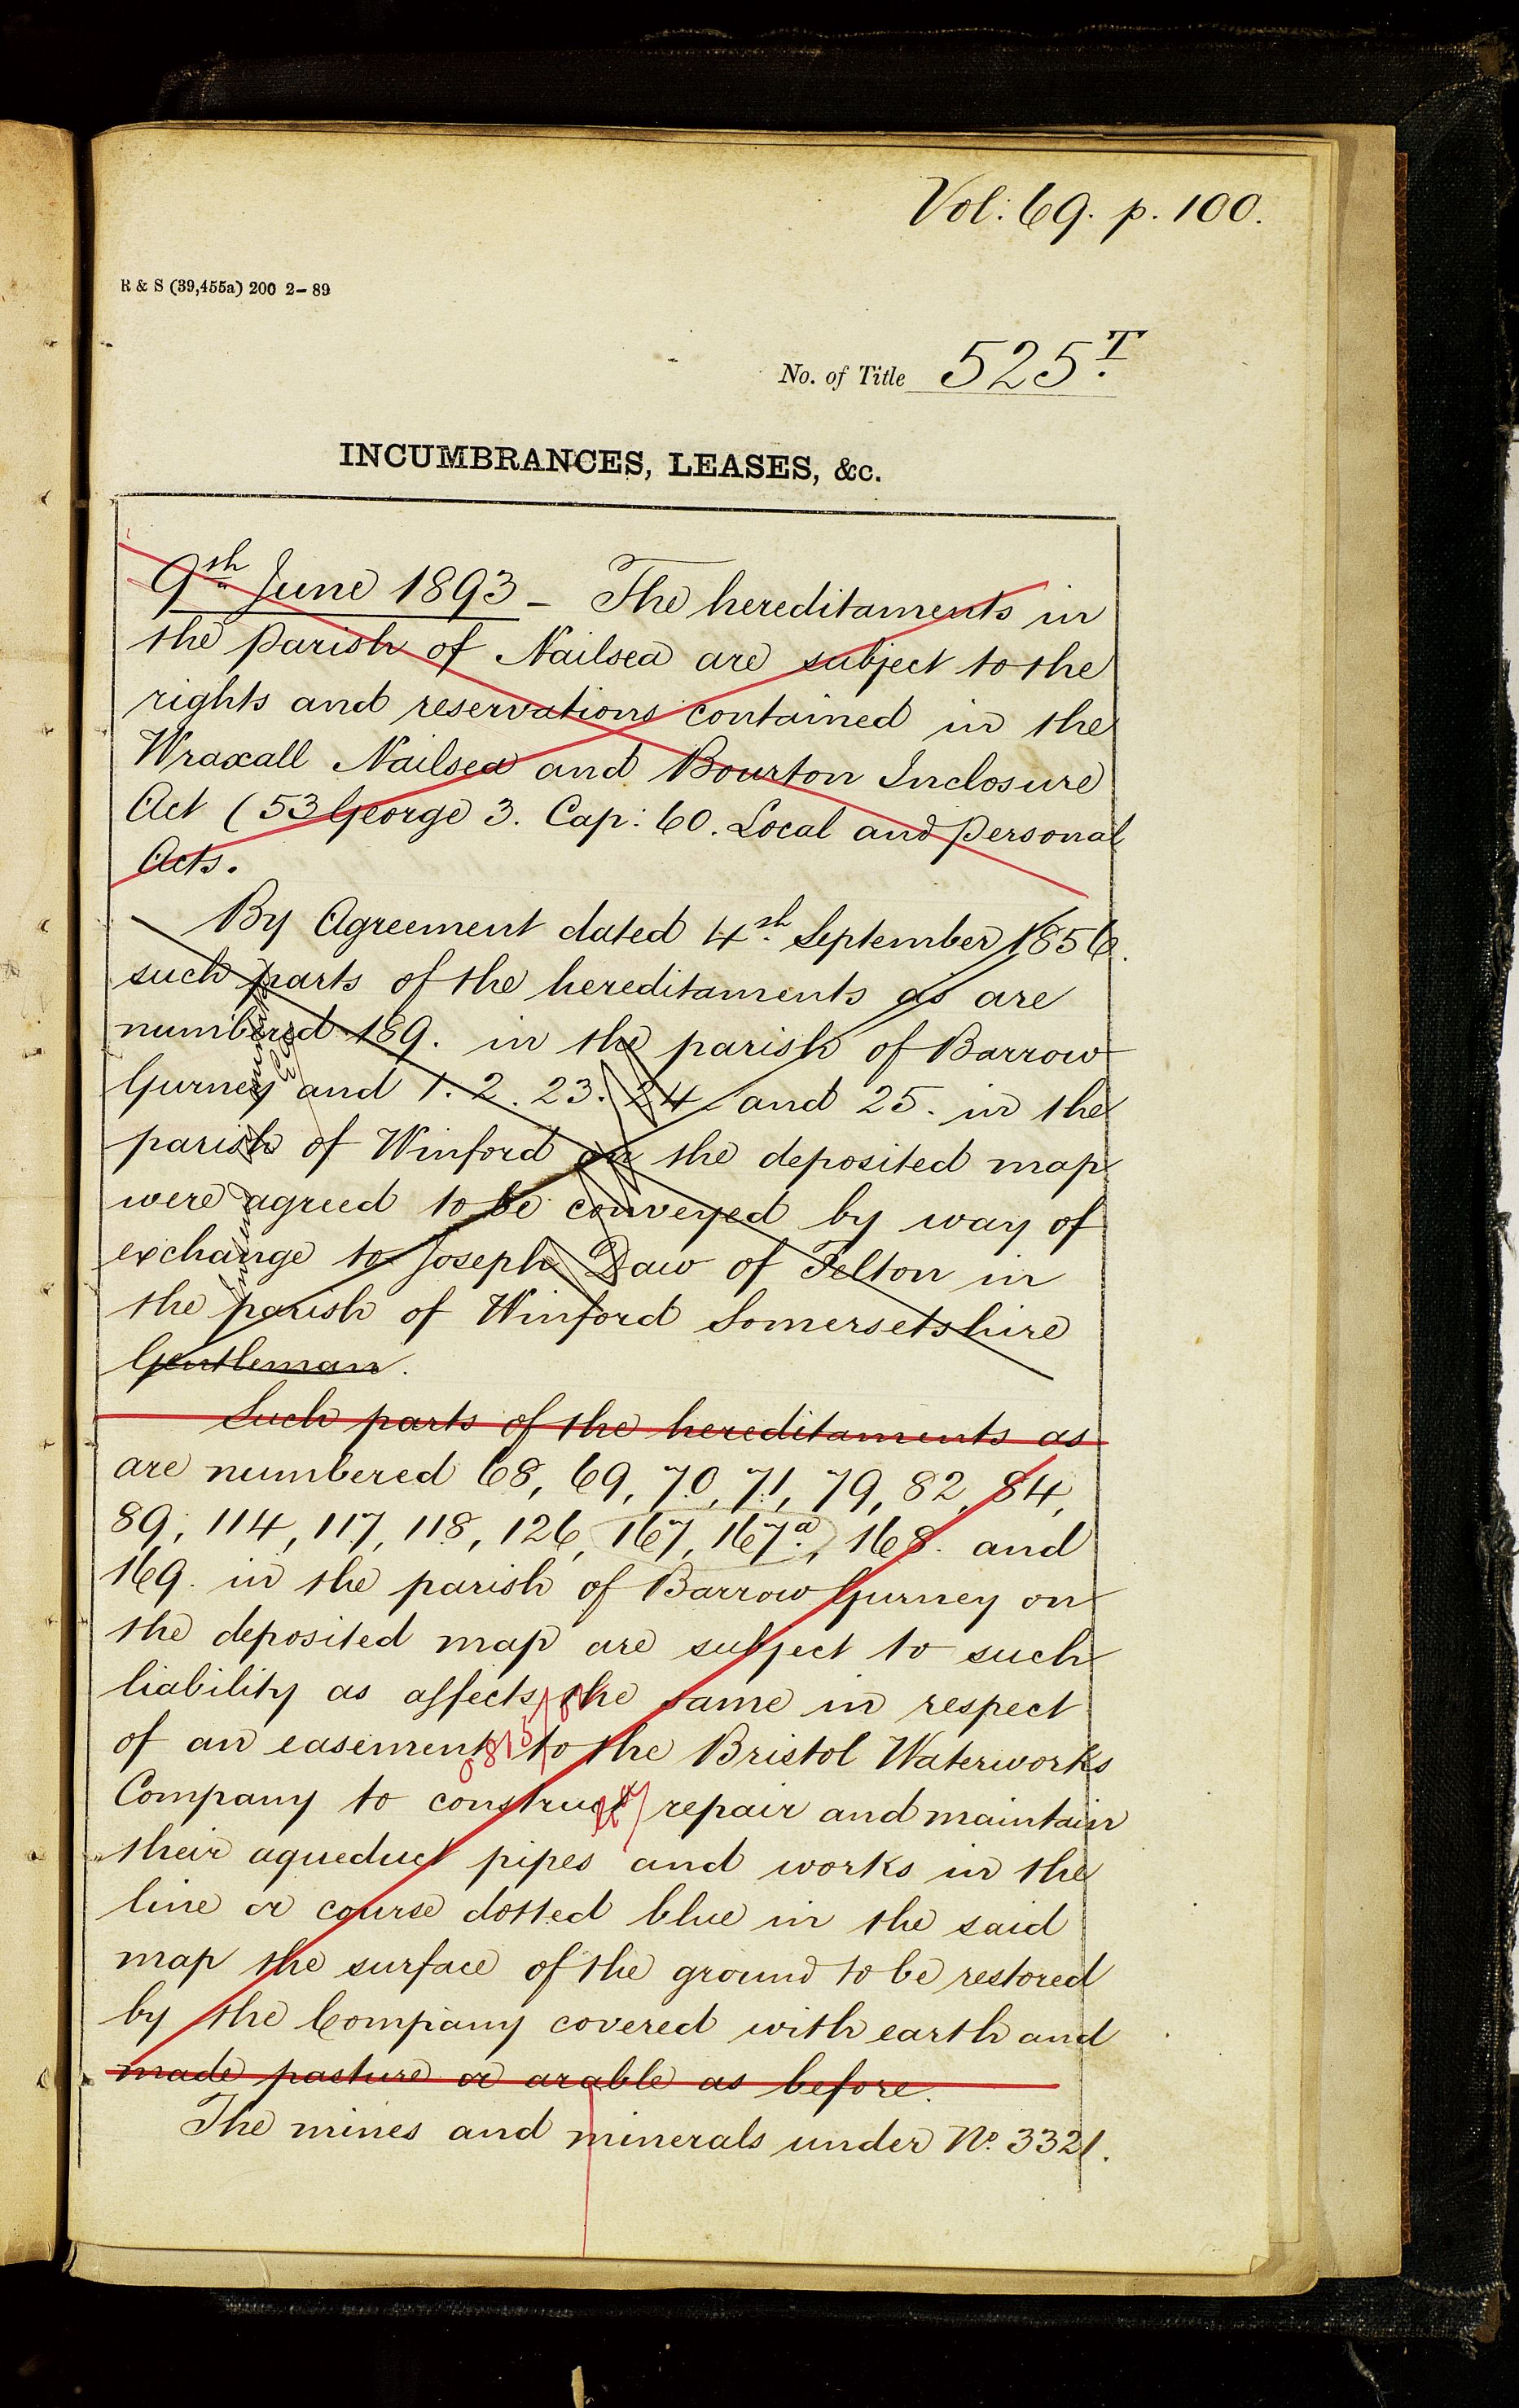 Vol: 69. p. 100.
R & S (39,455a) 200 2-89
No. of Title 525T.
INCUMBRANCES, LEASES, &c.
9th June 1893 - The hereditaments in
the parish of Nailsea are subject to the
rights and reservations contained in the
Wraxall Nailsea and Bourton Inclosure
Act (53 George 3. Cap: 60. Local and personal
Acts.
By Agreement dated 4th September 1856.
such parts of the hereditaments as are
numbered 189. in the parish of Barrow
Gurney and 1. 2. 23. 24. and 25. in the
parish of Winford on the deposited map
were agreed to be conveyed by way of
exchange to Joseph Daw of Felton in
the parish of Winford Somersetshire
Gentleman.
Such parts of the hereditaments as
are numbered 68, 69, 70, 71, 79, 82, 84,
89, 114, 117, 118, 126, 167, 167a, 168. and
169. in the parish of Barrow Gurney on
the deposited map are subject to such
liability as affects the same in respect
of an easement to the Bristol Waterworks
Company to construct repair and maintain
their aqueduct pipes and works in the
line or course dotted blue in the said
map the surface of the ground to be restored
by the Company covered with earth and
made pasture or arable as before.
The mines and minerals under No. 3321.